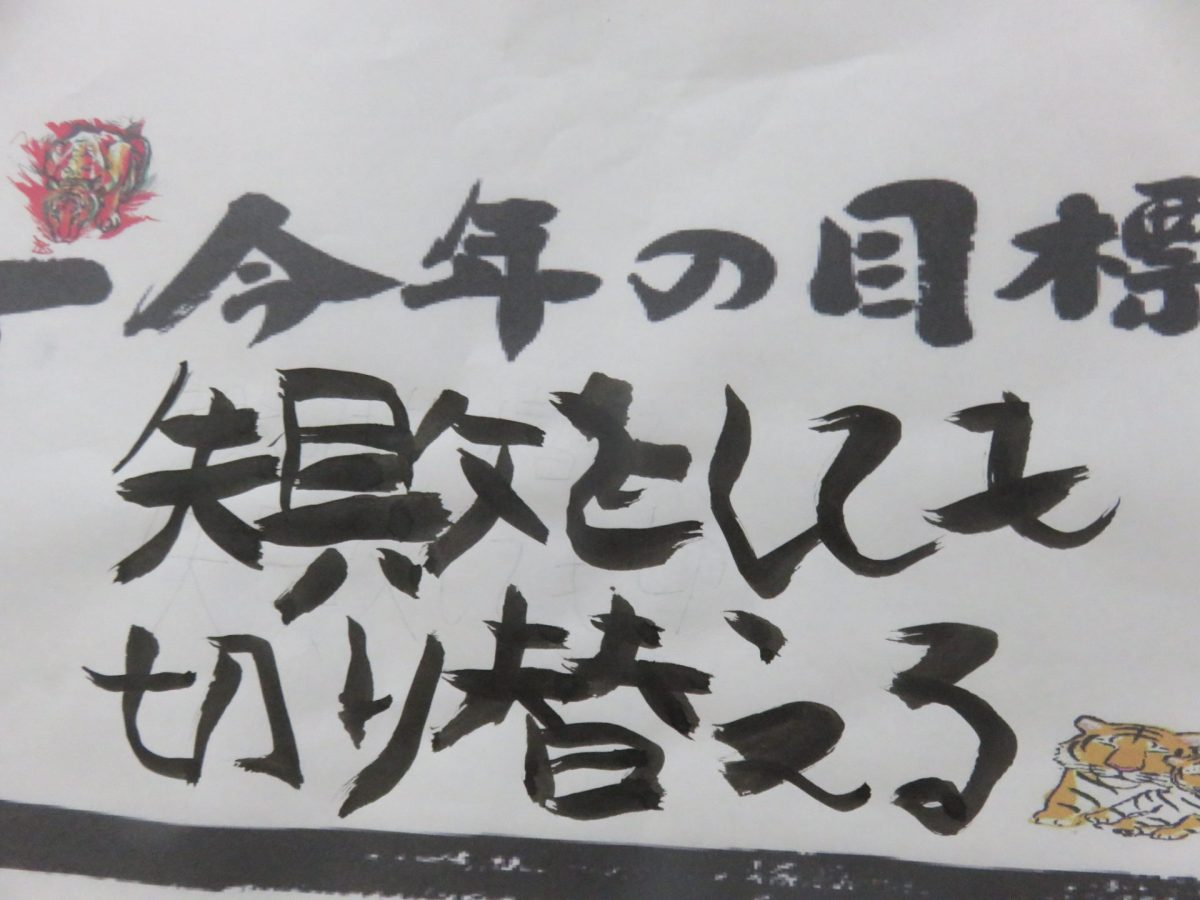 今年の目標
失敗をしても
切り替える